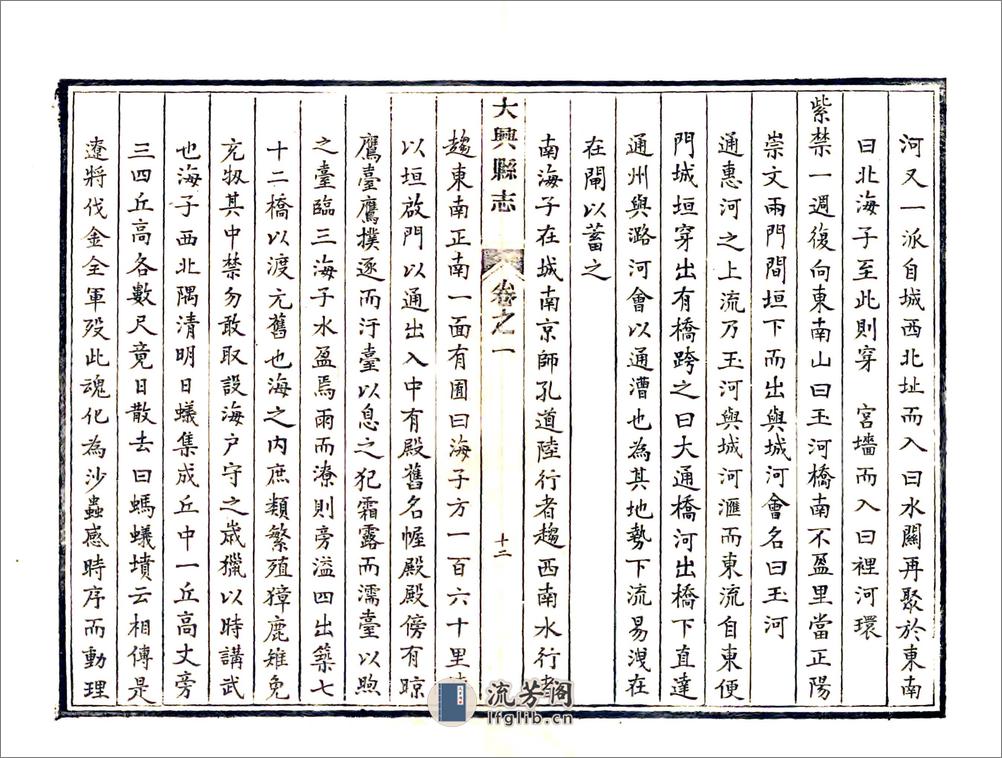 河又一派自城西北址而入曰水關再聚於東南
曰北海子至此則穿　宮墻而入曰裡河環
紫禁一週復向東南山曰玉河橋南不盈里當正陽
崇文兩門間垣下而出與城河會名曰玉河
通惠河之上流乃玉河與城河滙而東流自東便
門城垣穿出有橋跨之曰大通橋河出橋下直達
通州與潞河會以通漕也為其地勢下流易洩在
在閘以蓄之
南海子在城南京師孔道陸行者趨西南水行者
大興縣志　卷之一　十二
趨東南正南一面有囿曰海子方一百六十里
以垣啟門以通出入中有殿舊名幄殿殿傍有晾
鷹臺鷹撲逐而汗臺以息之犯霜露而濡臺以煦
之臺臨三海子水盈焉雨而潦則旁溢四出築七
十二橋以渡元舊也海之內庶類繁殖獐鹿雉兔
充牣其中禁勿敢取設海户守之嵗獵以時講武
也海子西北隅清明日蟻集成丘中一丘高丈旁
三四丘高各數尺竟日散去曰螞蟻墳云相傳是
遼將伐金全軍歿此魂化為沙蟲感時序而動理
流芳閣
lfglib.cn